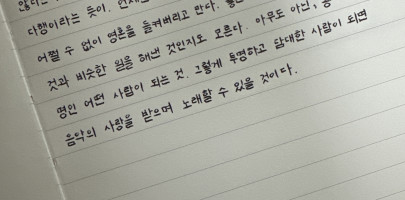 다행이라는 듯이. 언제
어쩔 수 없이 영혼을 들켜버리고 만다.
것과 비슷한 일을 해낸 것인지도 모른다. 아무도 아닌,
명인 어떤 사람이 되는 것. 그렇게 투명하고 담대한 사람이 되면
음악의 사랑을 받으며 노래할 수 있을 것이다.